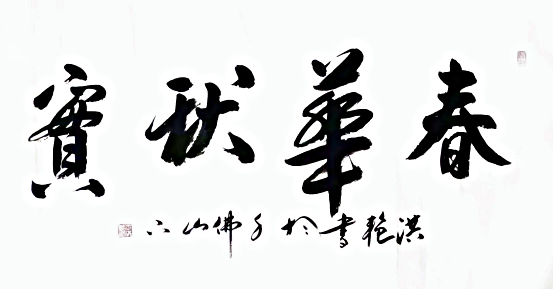 春華秋實
洪艳書於千佛山下